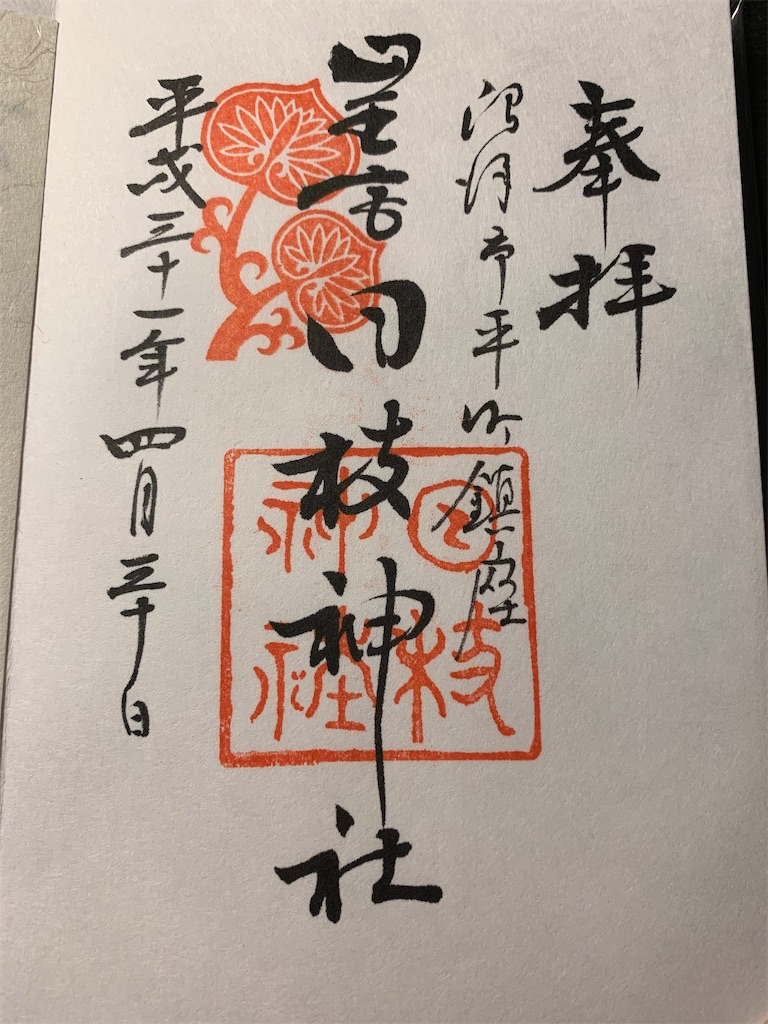 奉拝
沼津市平町鎮座
山王宮日枝神社
平成三十一年四月三十日
日枝
神社